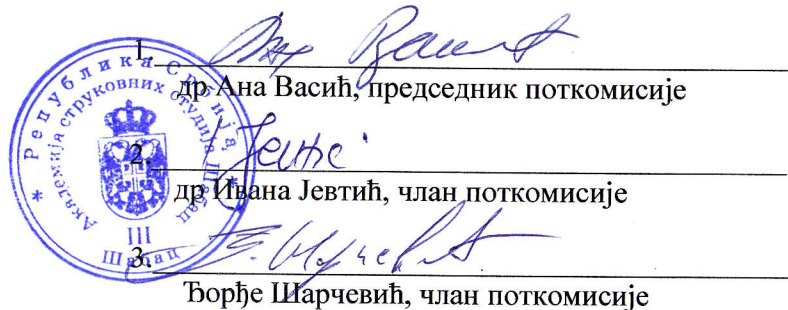 1.
др Ана Васић, председник поткомисије
2. Јевтић
др Ивана Јевтић, члан поткомисије
3.
Ђорђе Шарчевић, члан поткомисије
* Република Србија *
Академија струковних студија Шабац
III
Шабац